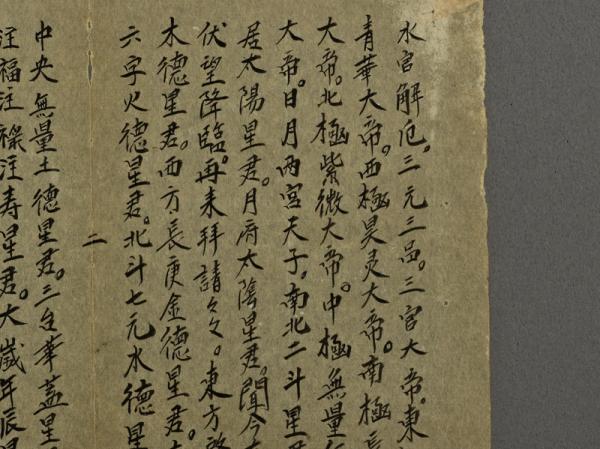 水官解厄。三元三品。三宫大帝。東
青華大帝。西極昊灵大帝。南極長
大帝。北極紫微大帝。中極無量
大帝。日月两宫天子。南北二斗星
居太陽星君。月府太陰星君。聞今
伏望降臨。再来拜請々々。東方
木德星君。西方長庚金德星君。
六字火德星君。北斗七元水德星
二
中央無量土德星君。三台華蓋星
注福注祿注寿星君。大歲年辰